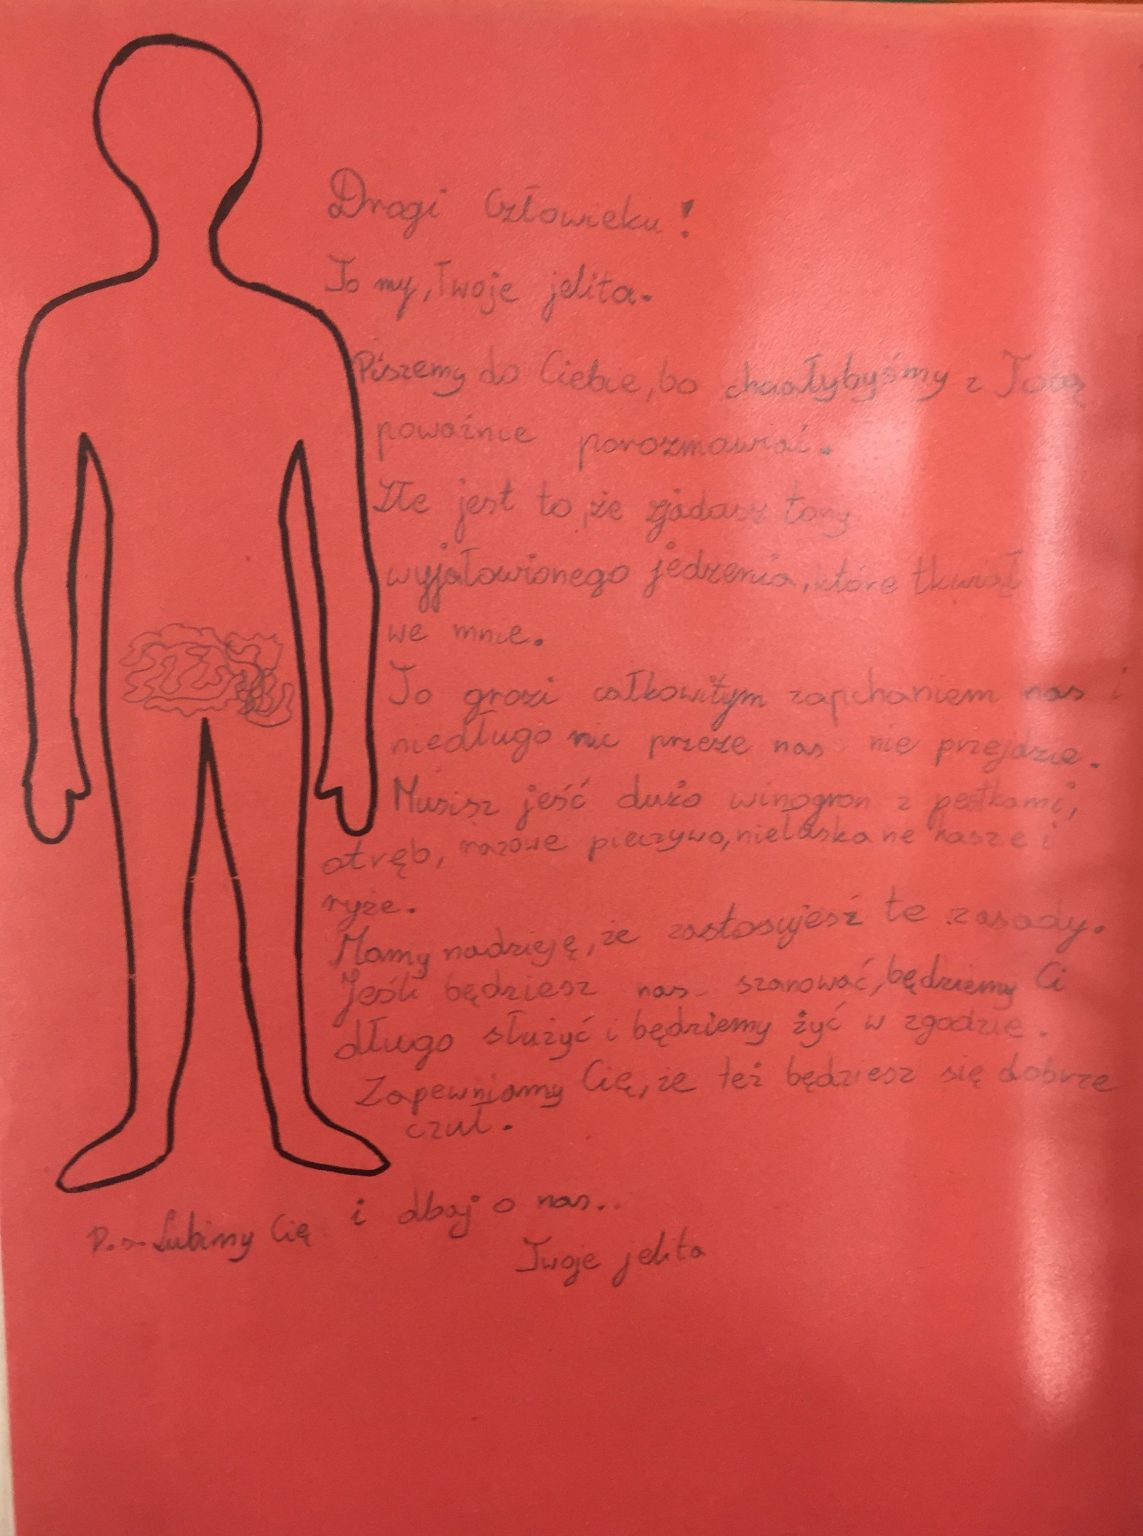 Drogi Człowieku!
To my, Twoje jelita.
Piszemy do Ciebie, bo chciałybyśmy z Tobą
poważnie porozmawiać.
Źle jest to, że zjadasz tony
wyjałowionego jedzenia, które tkwiał
we mnie.
To grozi całkowitym zapchaniem nas i
niedługo nic przeze nas nie przejdzie.
Musisz jeść dużo winogron z pestkami,
otręb, razowe pieczywo, niełuskane kasze i
ryże.
Mamy nadzieję, że zastosujesz te zasady.
Jeśli będziesz nas szanować, będziemy Ci
długo służyć i będziemy żyć w zgodzie.
Zapewniamy Cię, że też będziesz się dobrze
czuł.
P.s. Lubimy Cię i dbaj o nas..
Twoje jelita